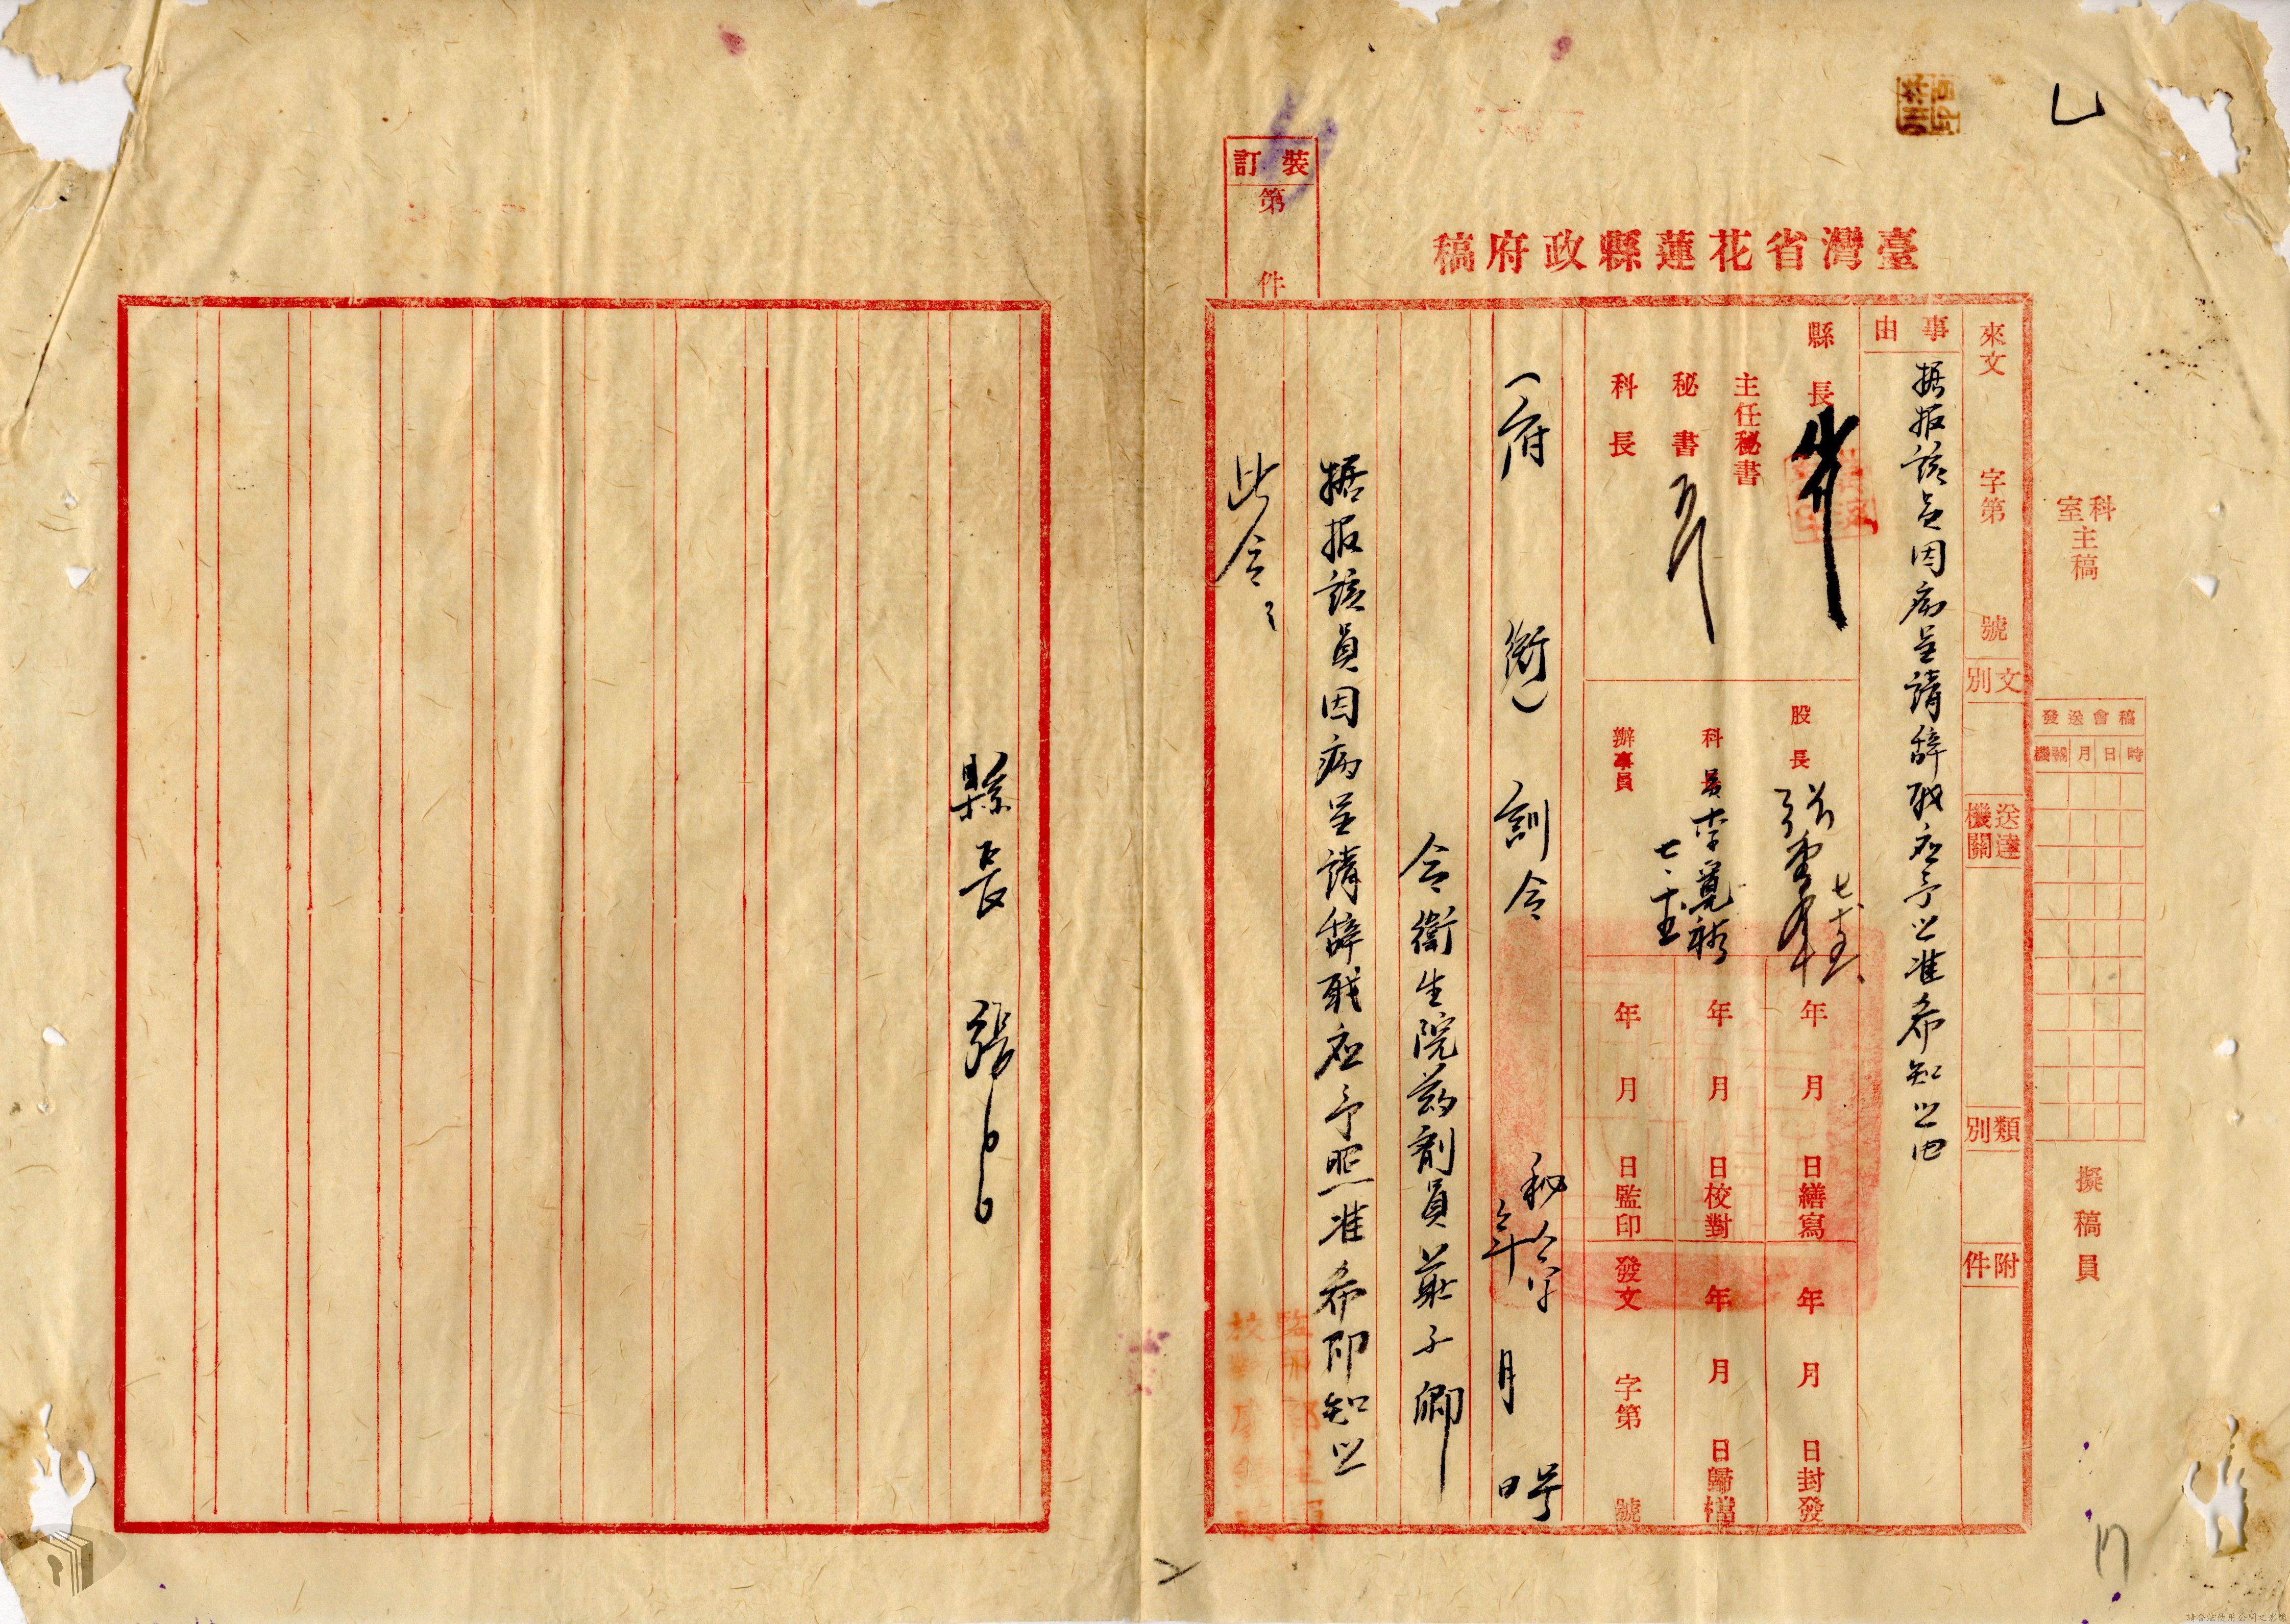 臺灣省花蓮縣政府稿
科室主稿
擬稿員
稿會送發
時日月機關
來文 字第 號
文別
送達機關
類別
附件
事由
据报該員因病呈請辞职应予照准希知照由
縣長
主任秘書
秘書
科長
股長
七、十五
科員 李
七、十五
辦事員
年 月 日繕寫
年 月 日校對
年 月 日監印
年 月 日封發
年 月 日歸檔
發文 字第 號
(府 銜) 訓令
秘人字 号
年 月 日
令衛生院葯剤員 子卿
据报該員因病呈請辞职应予照准希即知照
此令
裝訂
第 件
縣長 張